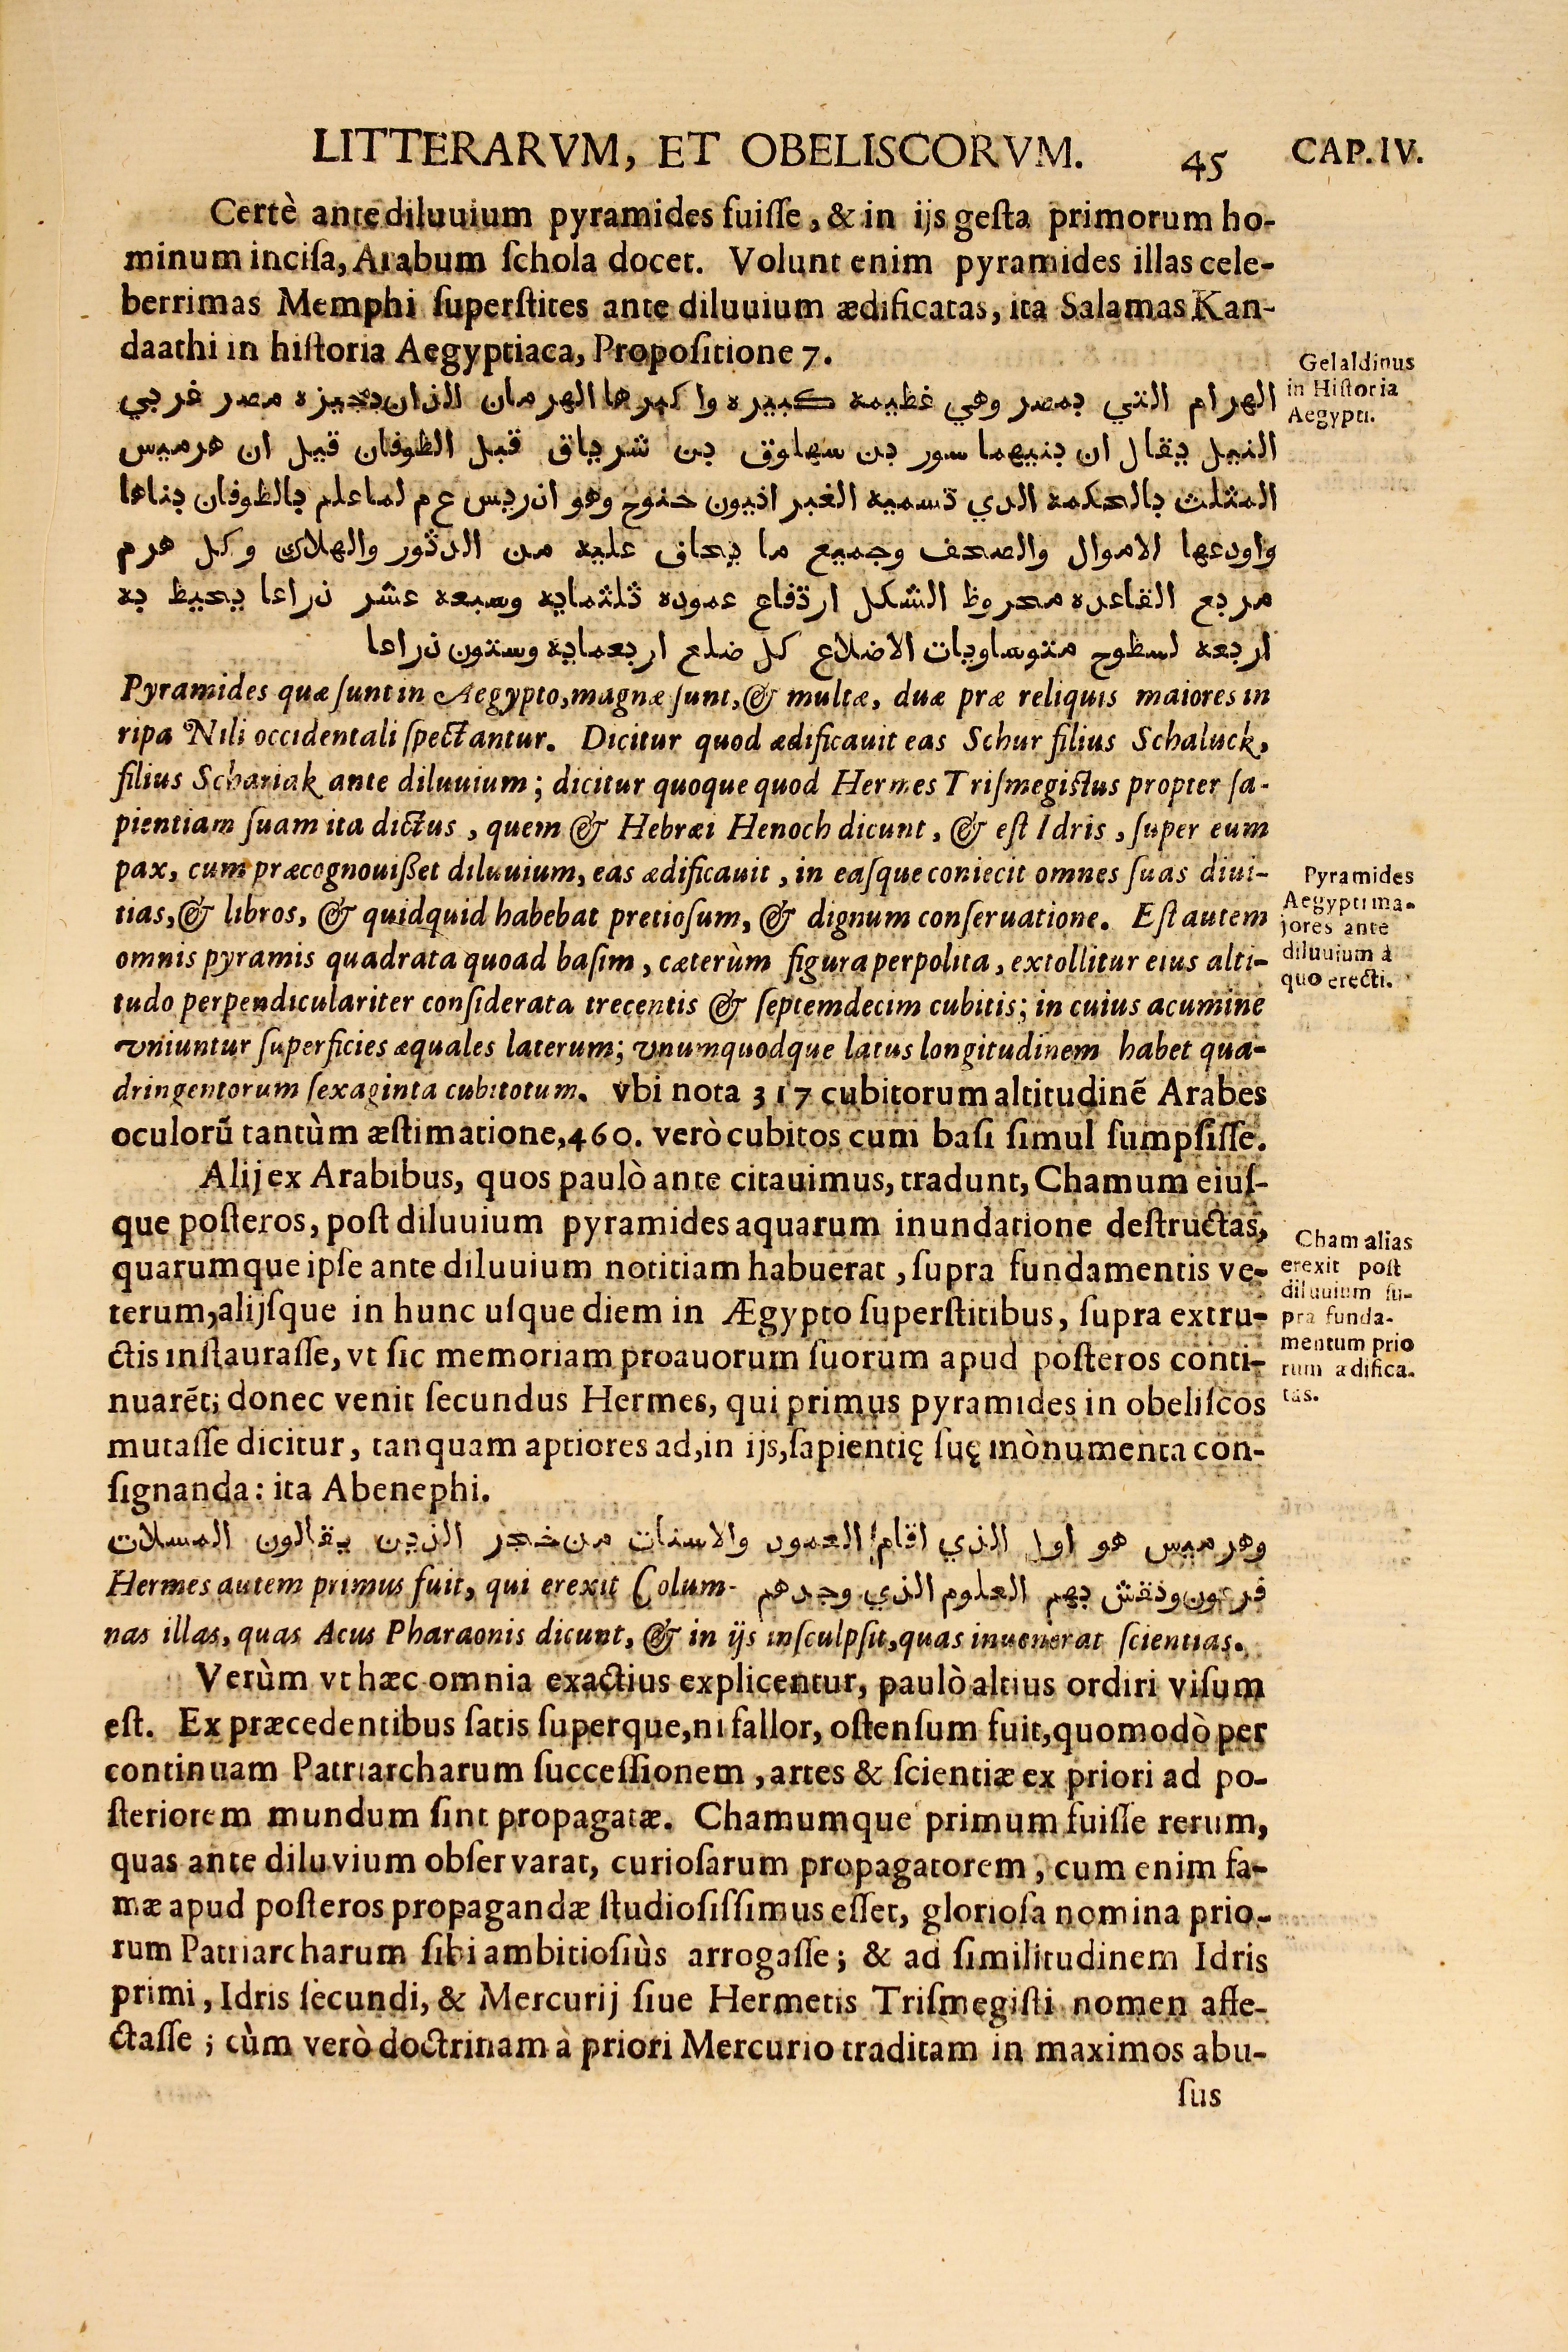 LITTERARVM, ET OBELISCORVM. 45 CAP. IV.
Certè ante diluuium pyramides fuiſſe, & in ijs geſta primorum ho-
minum inciſa, Arabum ſchola docet. Volunt enim pyramides illas cele-
berrimas Memphi ſuperſtites ante diluuium ædificatas, ita Salamas Kan-
daathi in hiſtoria Aegyptiaca, Propoſitione 7.
Gelaldinus
in Hiſtoria
Aegypti.
الهرام التي بمصر وهي غظيمة كبيره واكبرها الهرمان الذان بجيزه مصر غربي
النيل يقال ان بنيهما سور بن سهلوق بن شرياق قبل الظوفان قيل ان هرميس
المثلث بالحكمة الدي تسمية الغبر اذيون خنوح وهو اذريس ع م لما علم بالظوفان بناها
واودعها الاموال والصحف وجميع ما يحاف علية من الدثور والهلاك وكل هرم
مربع القاعده محروظ الشكل ارتفاع عموده ثلثماية وسبعة عشر ذراعا يحيظ به
اربعة لسظوح متوساويات الاضلاع كل ضلع اربعماية وستون ذراعا
Pyramides quæ ſunt in Aegypto, magnæ ſunt, & multæ, duæ præ reliquis maiores in
ripa Nili occidentali ſpectantur. Dicitur quod ædificauit eas Schur filius Schaluck,
filius Schariak ante diluuium; dicitur quoque quod Hermes Triſmegiſtus propter ſa-
pientiam ſuam ita dictus, quem & Hebræi Henoch dicunt, & eſt Idris, ſuper eum
pax, cum præcognouiſſet diluuium, eas ædificauit, in eaſque coniecit omnes ſuas diui-
tias, & libros, & quidquid habebat pretioſum, & dignum conſeruatione. Eſt autem
omnis pyramis quadrata quoad baſim, cæterùm figura perpolita, extollitur eius alti-
tudo perpendiculariter conſiderata trecentis & ſeptemdecim cubitis; in cuius acumine
vniuntur ſuperficies æquales laterum; vnumquodque latus longitudinem habet qua-
dringentorum ſexaginta cubitotum. vbi nota 317 cubitorum altitudinẽ Arabes
oculorũ tantùm æſtimatione, 460. verò cubitos cum baſi ſimul ſumpſiſſe.
Pyramides
Aegypti ma-
jores ante
diluuium à
quo erecti.
Alij ex Arabibus, quos paulò ante citauimus, tradunt, Chamum eiuſ-
que poſteros, poſt diluuium pyramides aquarum inundatione deſtructas,
quarumque ipſe ante diluuium notitiam habuerat, ſupra fundamentis ve-
terum, alijſque in hunc uſque diem in Ægypto ſuperſtitibus, ſupra extru-
ctis inſtauraſſe, vt ſic memoriam proauorum ſuorum apud poſteros conti-
nuarẽt; donec venit ſecundus Hermes, qui primus pyramides in obeliſcos
mutaſſe dicitur, tanquam aptiores ad, in ijs, ſapientię ſuę mònumenta con-
ſignanda: ita Abenephi.
Cham alias
erexit poſt
diluuium ſu-
pra funda-
mentum prio
rum ædifica-
tas.
وهرميس هو اول الذي اقام العمود والاسنات من خجر الذين يقالون المسلات
فرعون ونقش بهم العلوم الذي وجدهم Hermes autem primus fuit, qui erexit Colum-
nas illas, quas Acus Pharaonis dicunt, & in ijs inſculpſit, quas inuenerat ſcientias.
Verùm vt hæc omnia exactius explicentur, paulò altius ordiri viſum
eſt. Ex præcedentibus ſatis ſuperque, ni fallor, oſtenſum fuit, quomodò per
continuam Patriarcharum ſucceſſionem, artes & ſcientiæ ex priori ad po-
ſteriorem mundum ſint propagatæ. Chamumque primum fuiſſe rerum,
quas ante diluvium obſervarat, curioſarum propagatorem, cum enim fa-
mæ apud poſteros propagandæ ſtudioſiſſimus eſſet, glorioſa nomina prio-
rum Patriarcharum ſibi ambitioſiùs arrogaſſe; & ad ſimilitudinem Idris
primi, Idris ſecundi, & Mercurij ſiue Hermetis Triſmegiſti nomen affe-
ctaſſe; cùm verò doctrinam à priori Mercurio traditam in maximos abu-
ſus